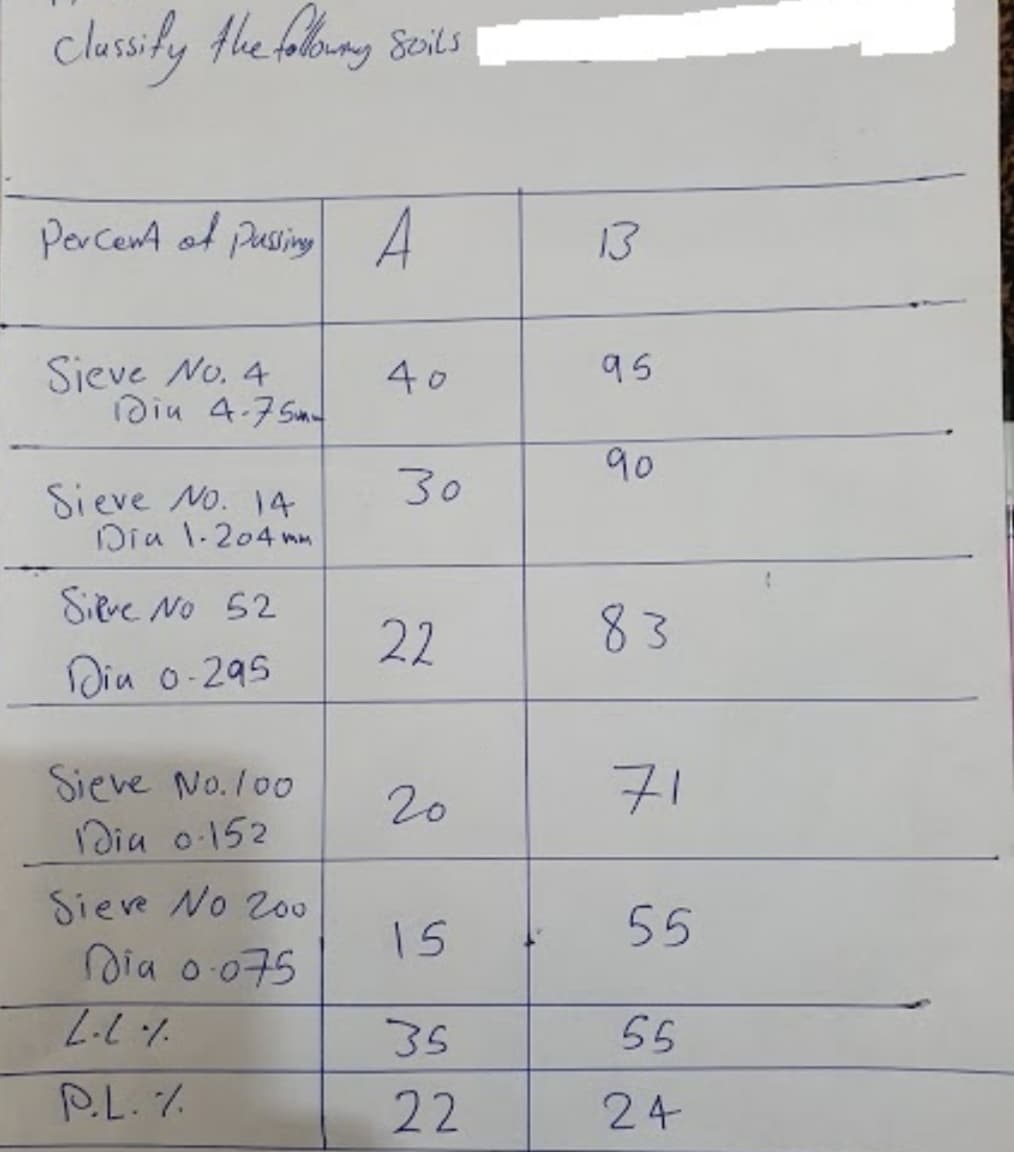 Classify the following soils
Percent of Passing A B
Sieve No. 4 40 95
Dia 4.75mm
Sieve No. 14 30 90
Dia 1.204 mm
Sieve No 52 22 83
Dia 0.295
Sieve No. 100 20 71
Dia 0.152
Sieve No 200 15 55
Dia 0.075
L.L % 35 55
P.L. % 22 24